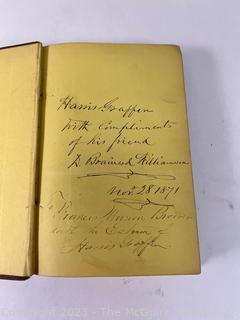 Harris Graffen
with compliments
of his friend
D. Brainerd Williamson
Nov. 28 1871
To Francis Brown
with the Esteem of
Harris Graffen
© 2023 - The McGuire